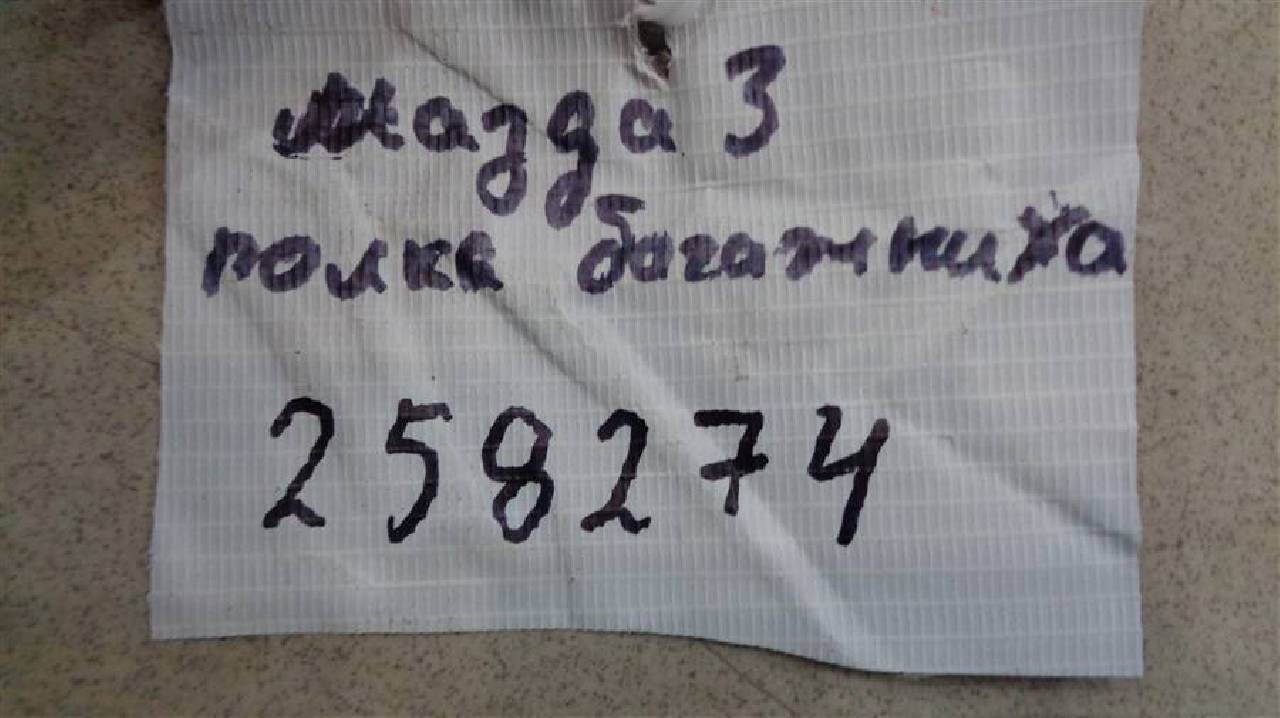 Мазда 3
полка багажника
258274